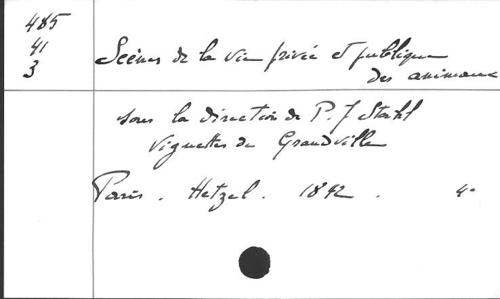 485
41
3
Scènes de la vie privée et publique
des animaux
sous la direction de P. J Stahl
Vignettes de Grandville
Paris . Hetzel . 1842 . 4°